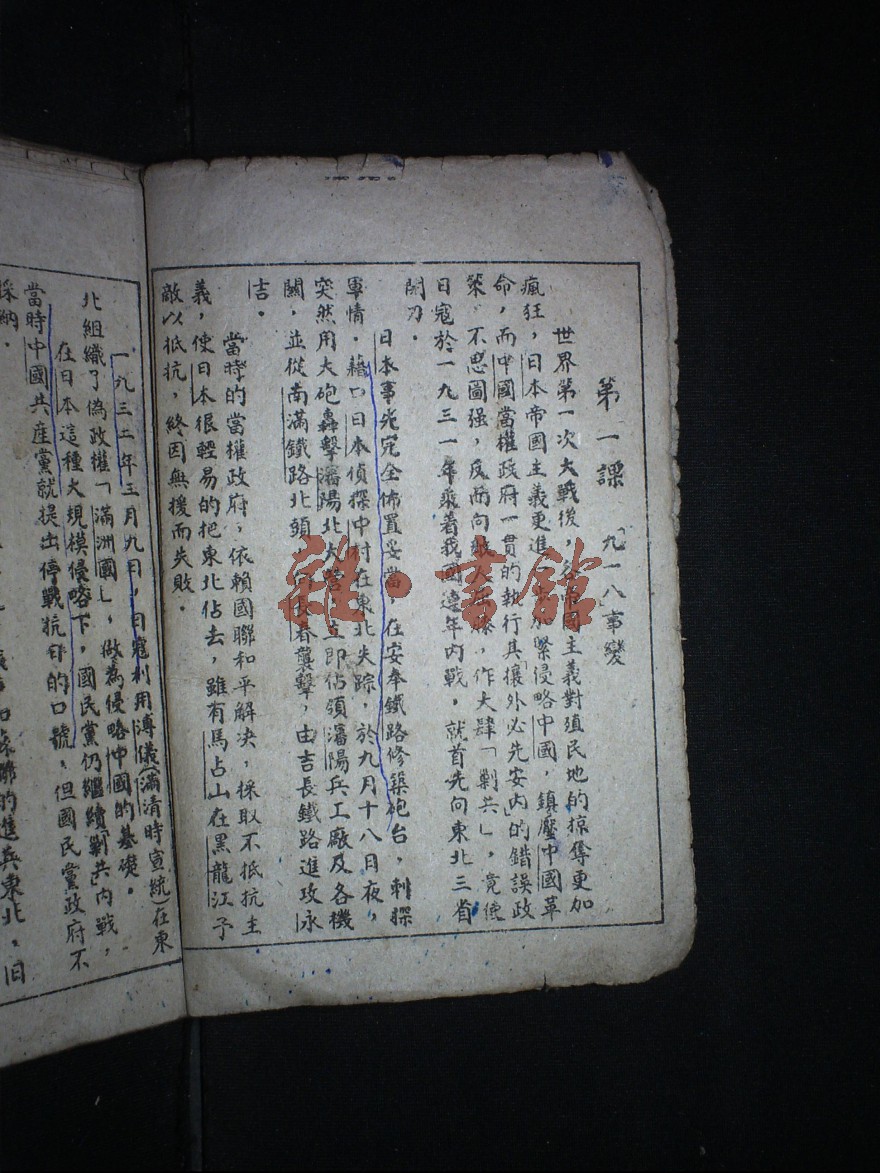 第一課 「九一八事變
世界第一次大戰後，各帝國主義對殖民地的掠奪更加
瘋狂，日本帝國主義更進一加緊侵略中國，鎮壓中國革
命，而中國當權政府一貫的執行其「攘外必先安內」的錯誤政
策，不思圖强，反而向敵人，作大肆「剿共」，竟使
日寇於一九三一年乘着我國連年内戰，就首先向東北三省
開刀．
日本事先完全佈置妥當，在安奉鐵路修築砲台，刺探
軍情．藉口日本偵探中村在東北失踪，於九月十八日夜，
突然用大砲轟擊瀋陽北大營，立即佔領瀋陽兵工廠及各機
關，並從南滿鐵路北頭，向長春襲擊，由吉長鐵路進攻永
吉。
當時的當權政府，依賴國聯和平解決，採取不抵抗主
義，使日本很輕易的把東北佔去，雖有馬占山在黑龍江予
敵以抵抗，終因無援而失敗．
一九三二年三月九日，日寇利用溥儀（滿清時宣統）在東
北組織了偽政權「滿洲國」，做為侵略中國的基礎。
在日本這種大規模侵略下，國民黨仍繼續「剿共」內戰，
當時中國共産黨就提出停戰抗日的口號，但國民黨政府不
採納．
的進兵東北，旧
雜·書館